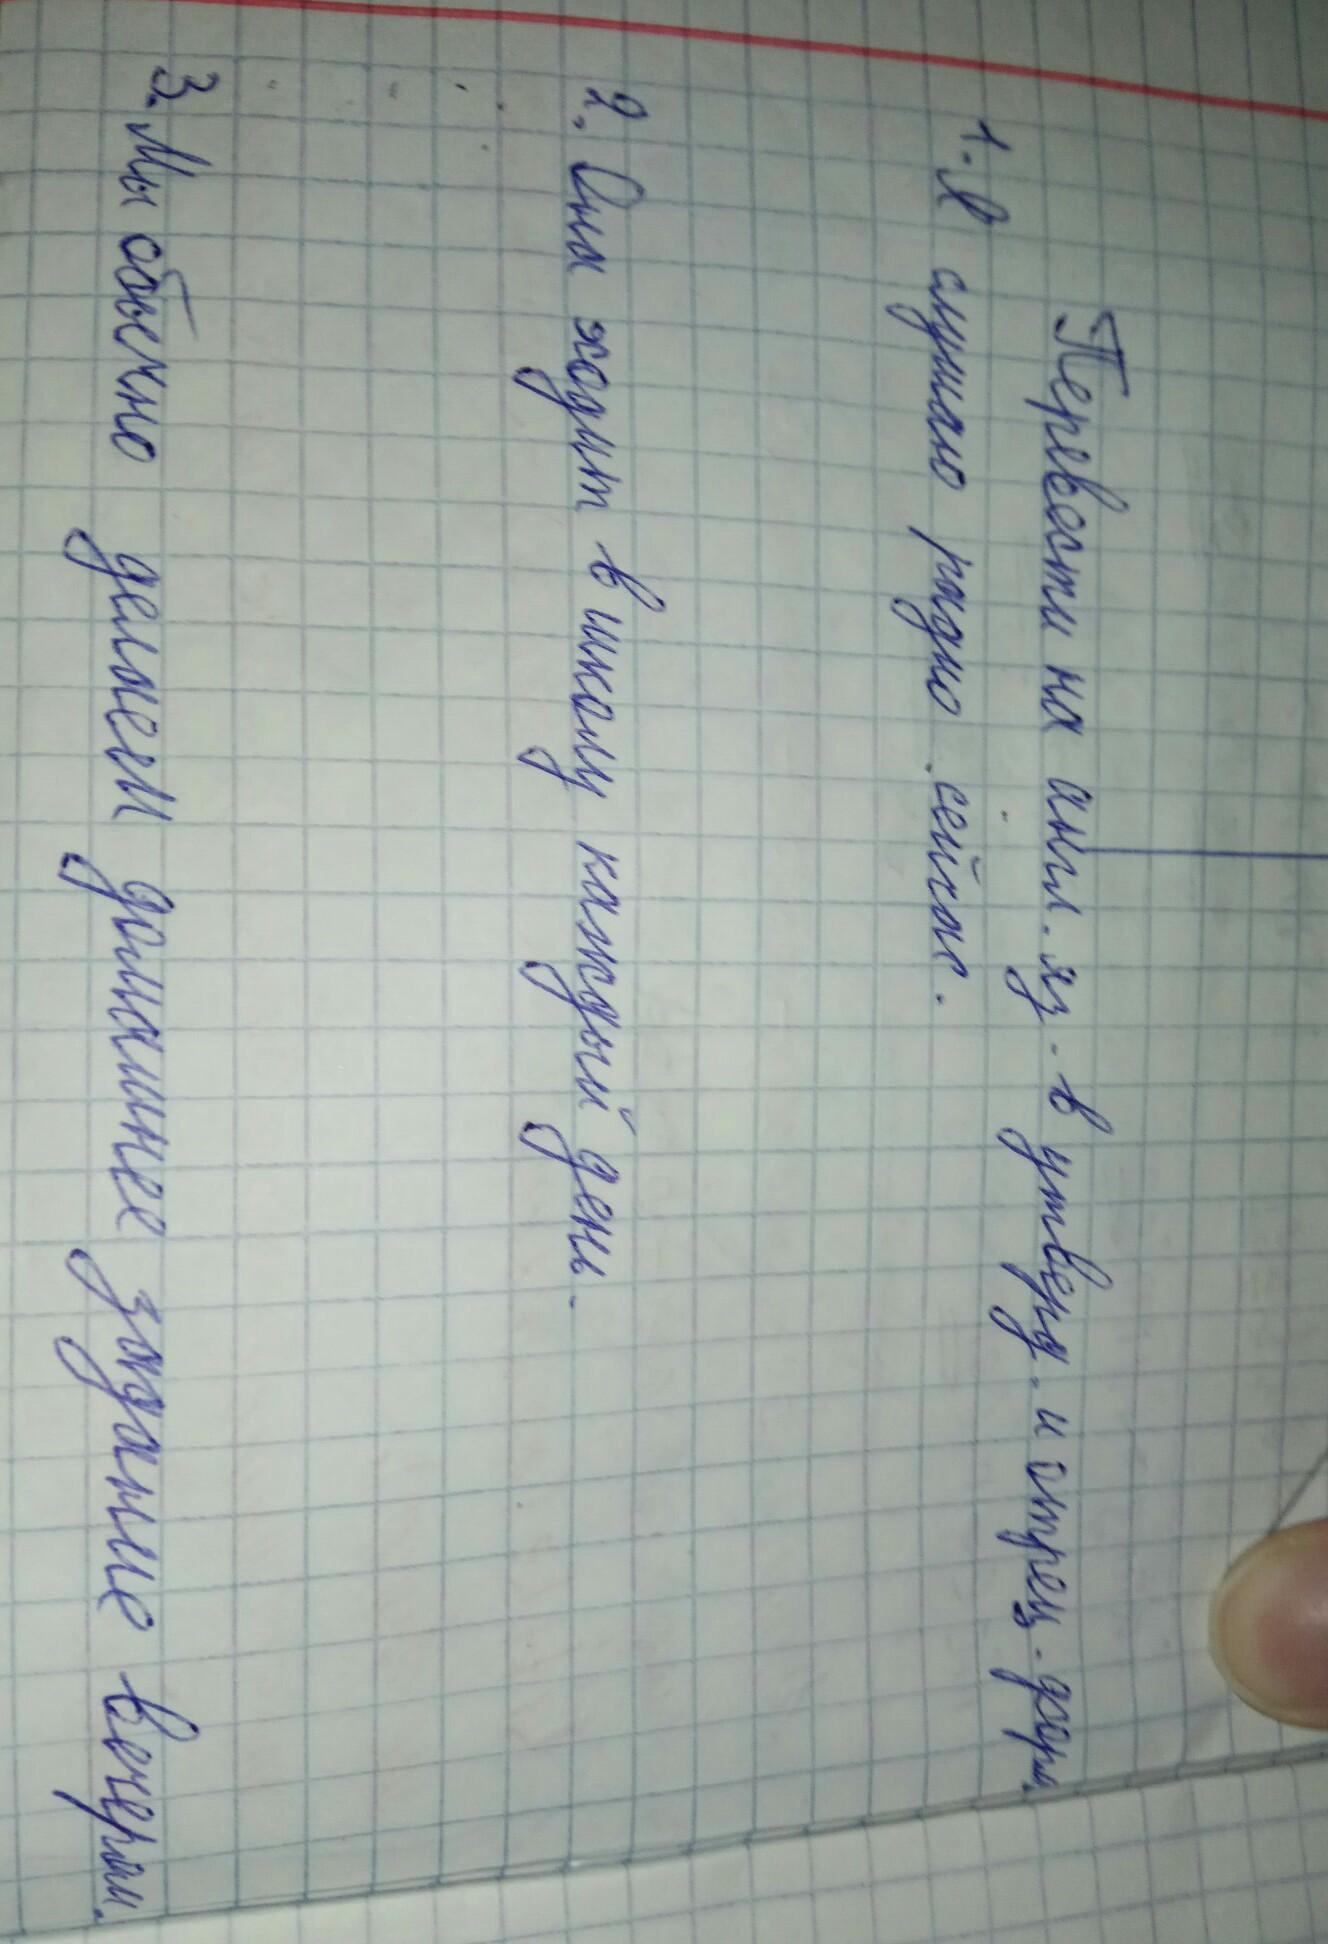 Перевести на англ. яз. в утверд. и отриц. форм.
1. Я слушаю радио сейчас.
2. Она ходит в школу каждый день.
3. Мы обычно делаем домашнее задание вечерам.